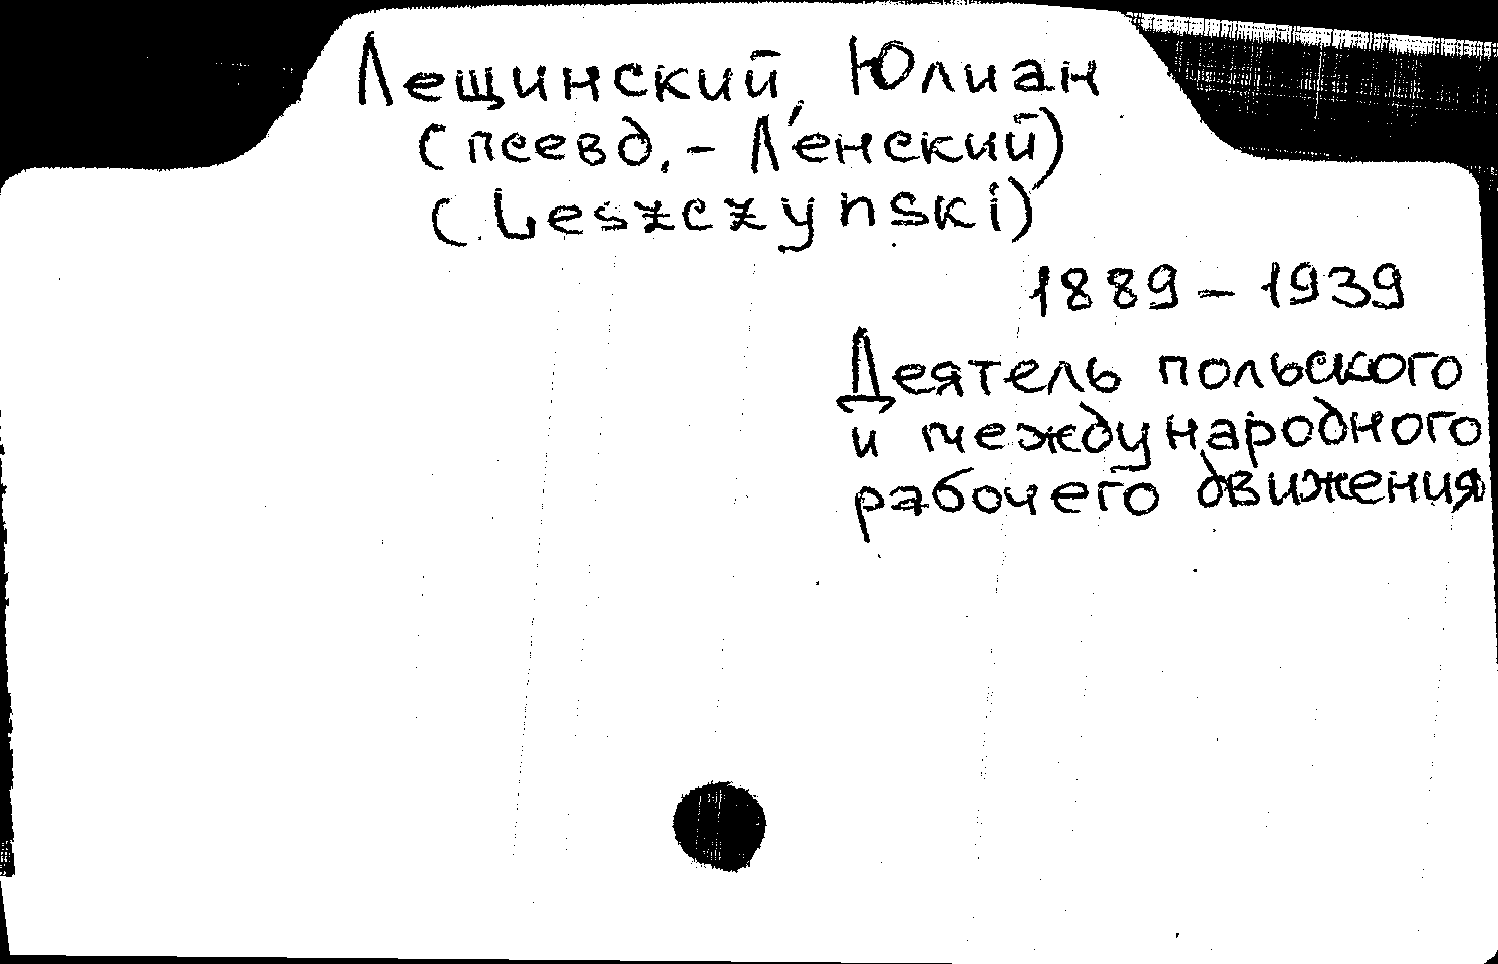 Лещинский, Юлиан
(псевд. - Ле́нский)
(Leszczynski)
1889 - 1939
Деятель польского
и международного
рабочего движения